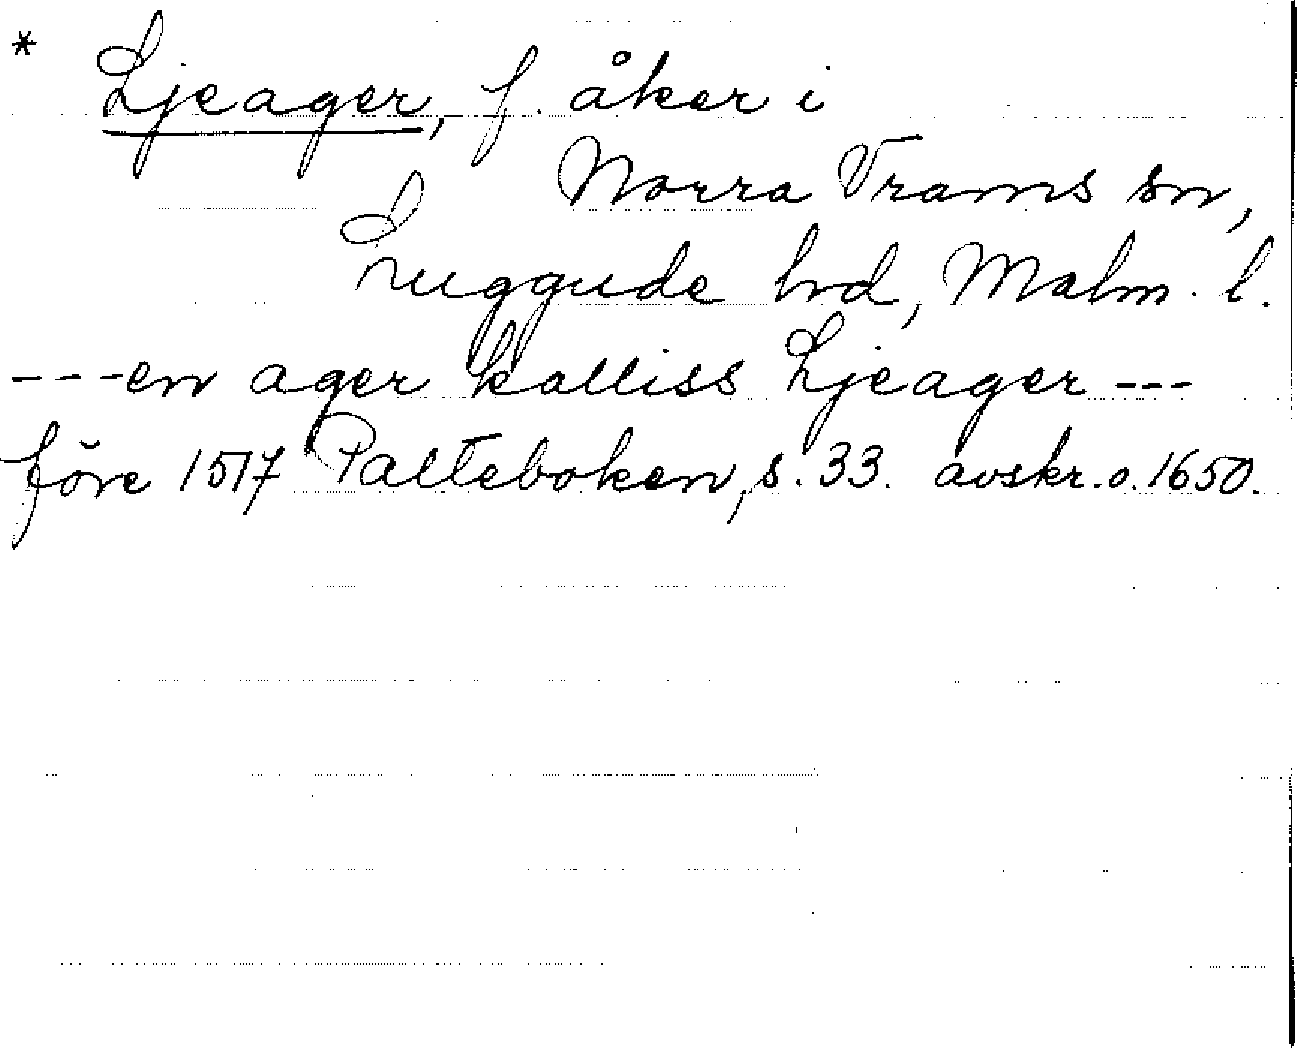 * Ljeager, f. åker i
Norra Vrams sn,
Luggude hd, Malm. l.
---en ager kalliss Ljeager ---
före 1517 Palteboken, s. 33. avskr. o. 1650.